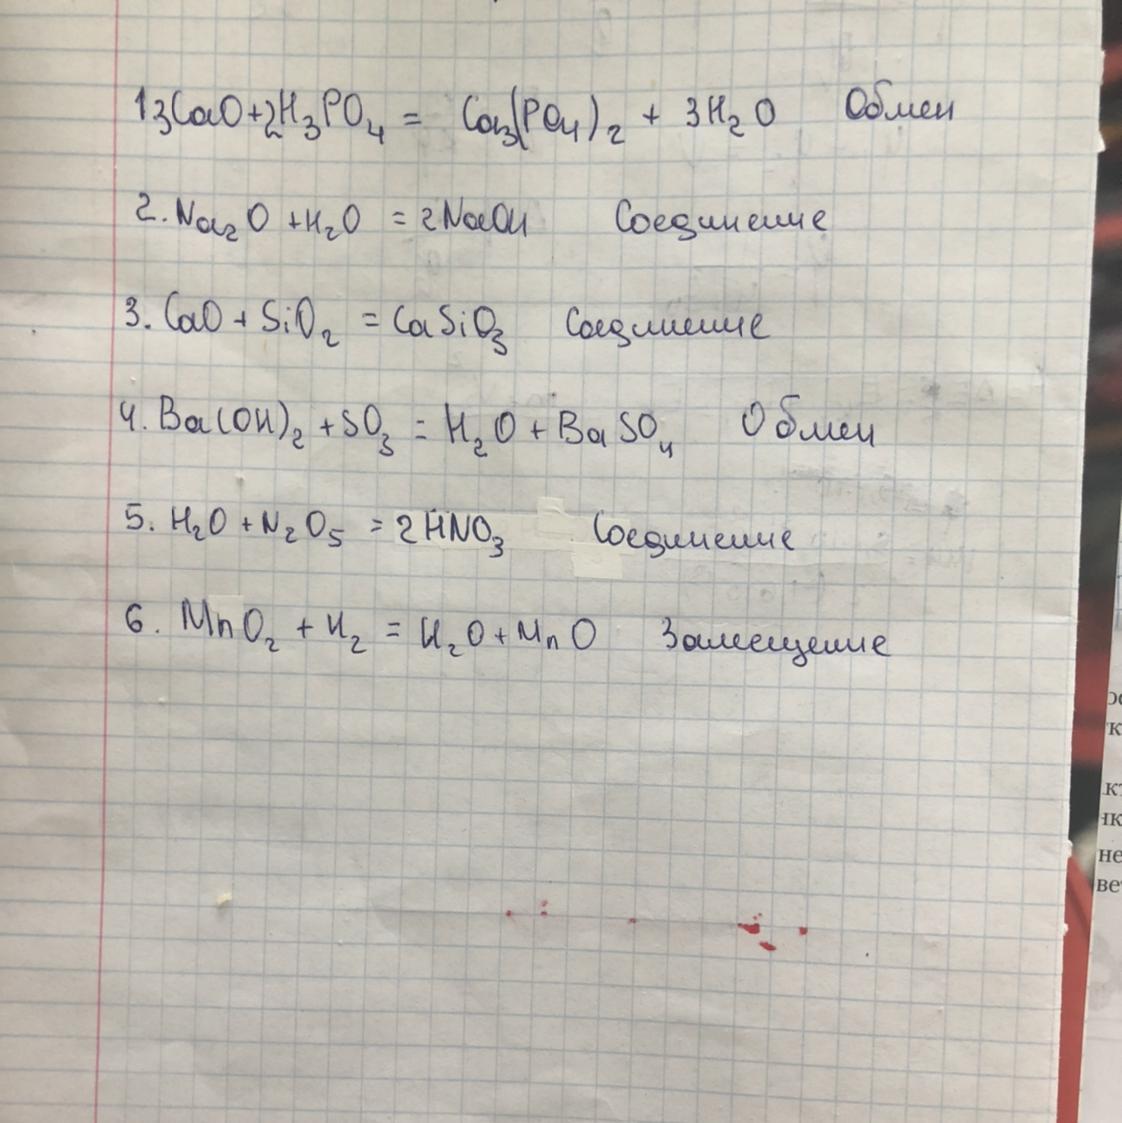 1 3CaO+2H₃PO₄ = Ca₃(PO₄)₂ + 3H₂O Обмен
2. Na₂O +H₂O = 2NaOH Соединение
3. CaO + SiO₂ = CaSiO₃ Соединение
4. Ba(OH)₂ + SO₃ = H₂O + BaSO₄ Обмен
5. H₂O + N₂O₅ = 2HNO₃ Соединение
6. MnO₂ + H₂ = H₂O + MnO Замещение
не